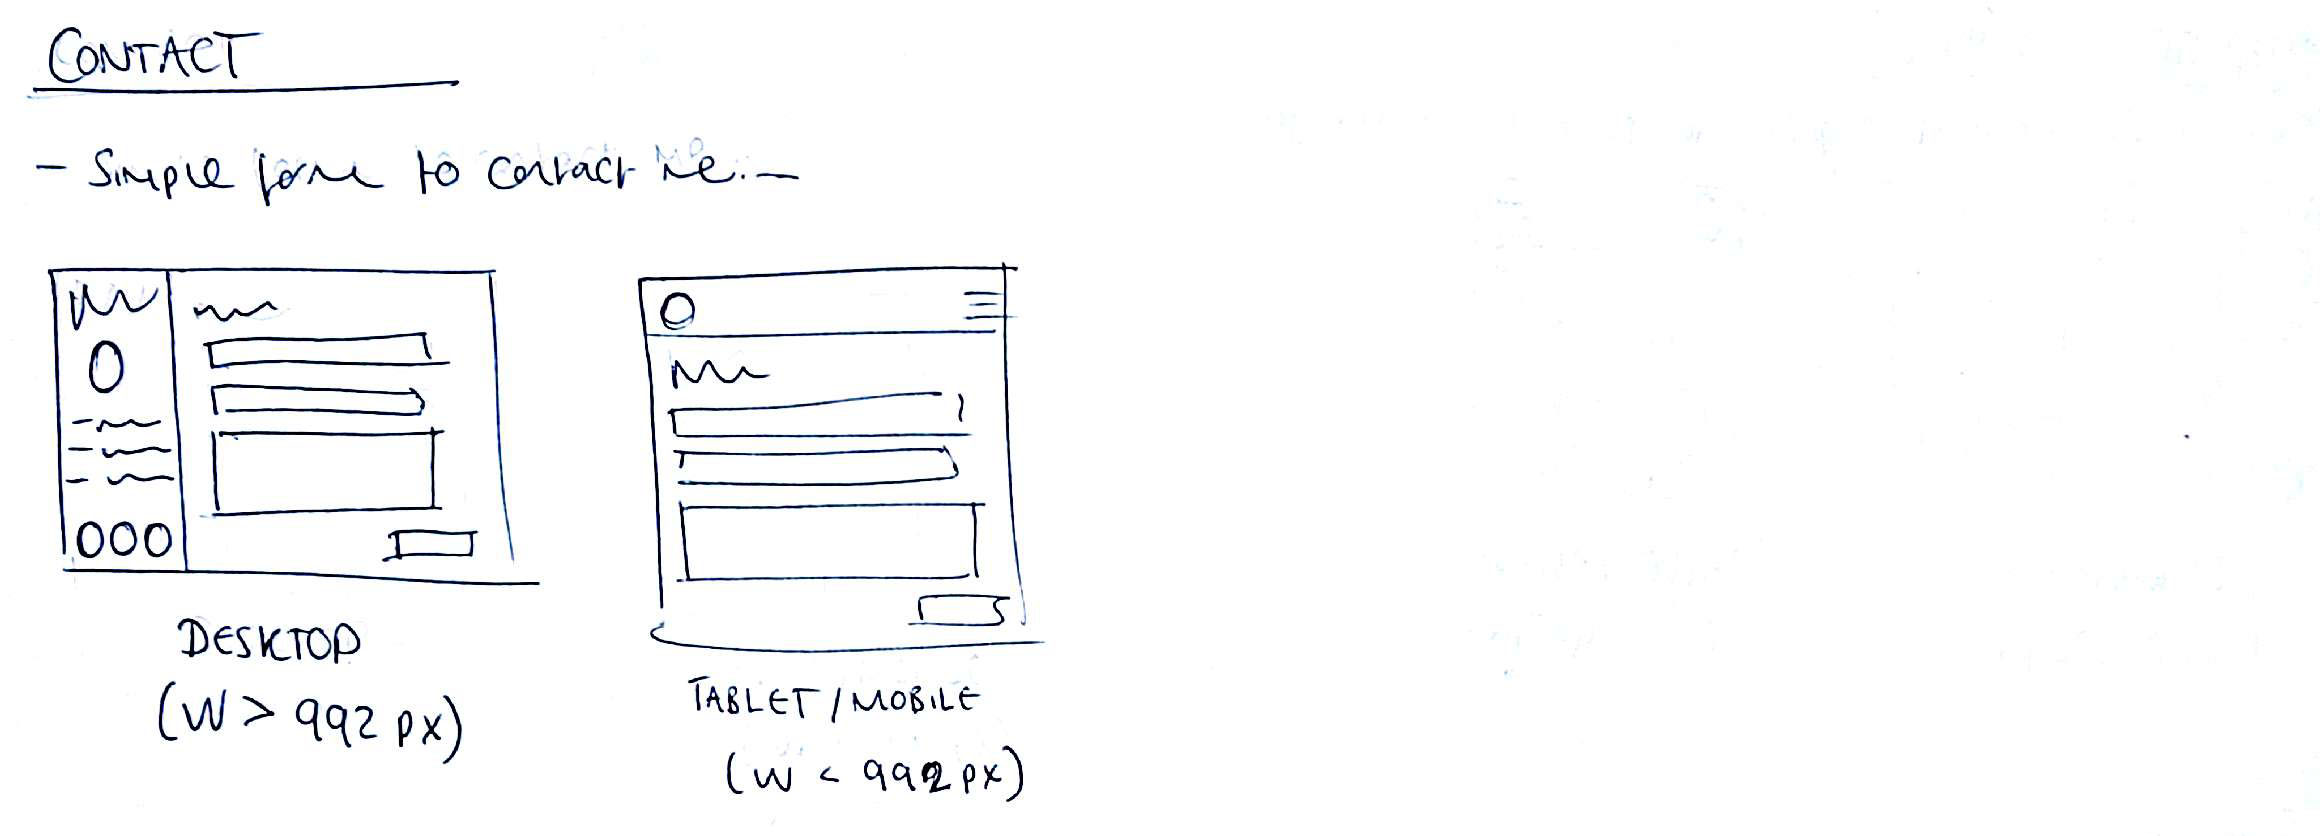 CONTACT
- Simple form to contact me.-
DESKTOP
(W > 992 px)
TABLET / MOBILE
(W < 992 px)